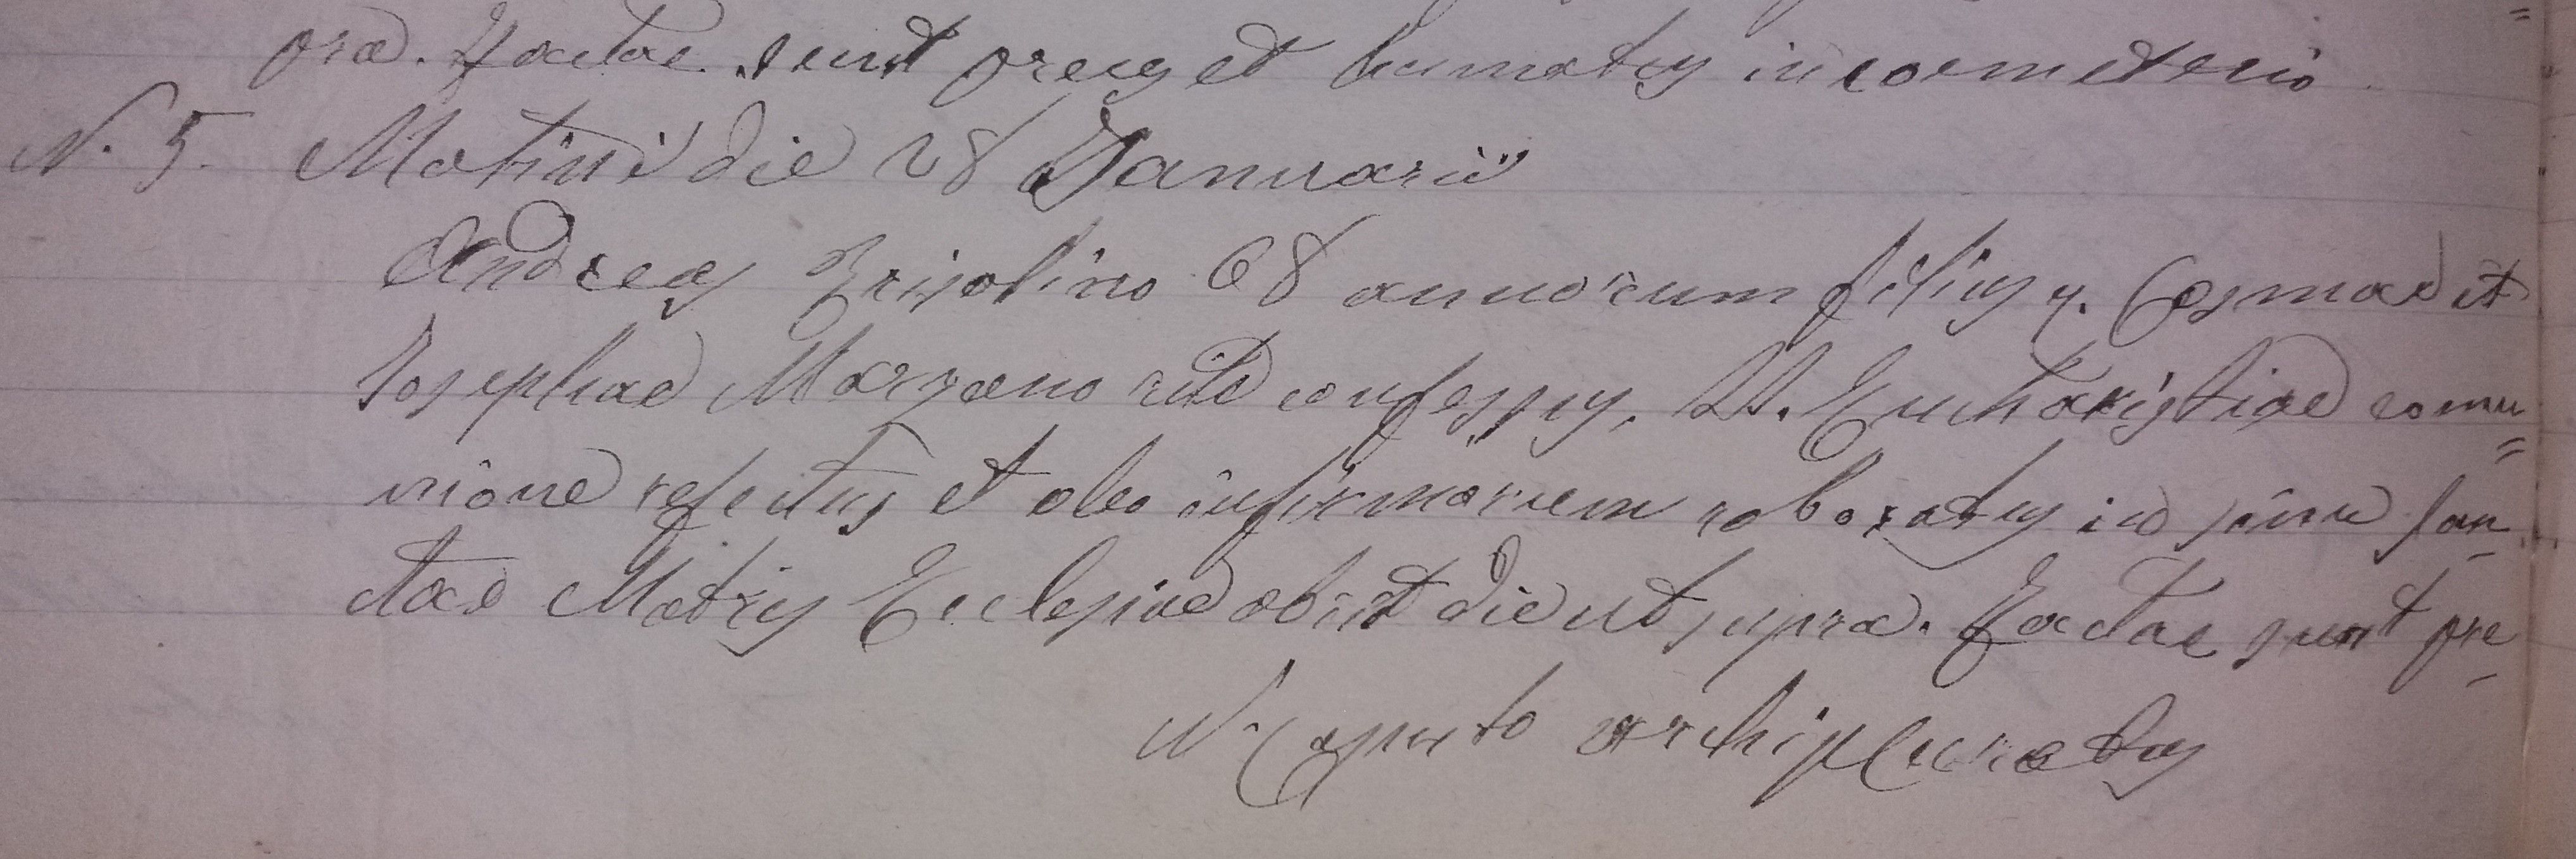 pra. Factae sunt preces et humatus in coemeterio.
N. 5. Matini die 28 Januarii
Andreas Grisolino 68 annorum filius q. Cosmae et
Josephae Marzano rite confessus, SS. Eucharistiae comu=
nione refectus et oleo infirmorum roboratus in sinu San-
ctae Matris Ecclesiae obiit die ut supra. Factae sunt pre-
N. Caputo archip. Curatus